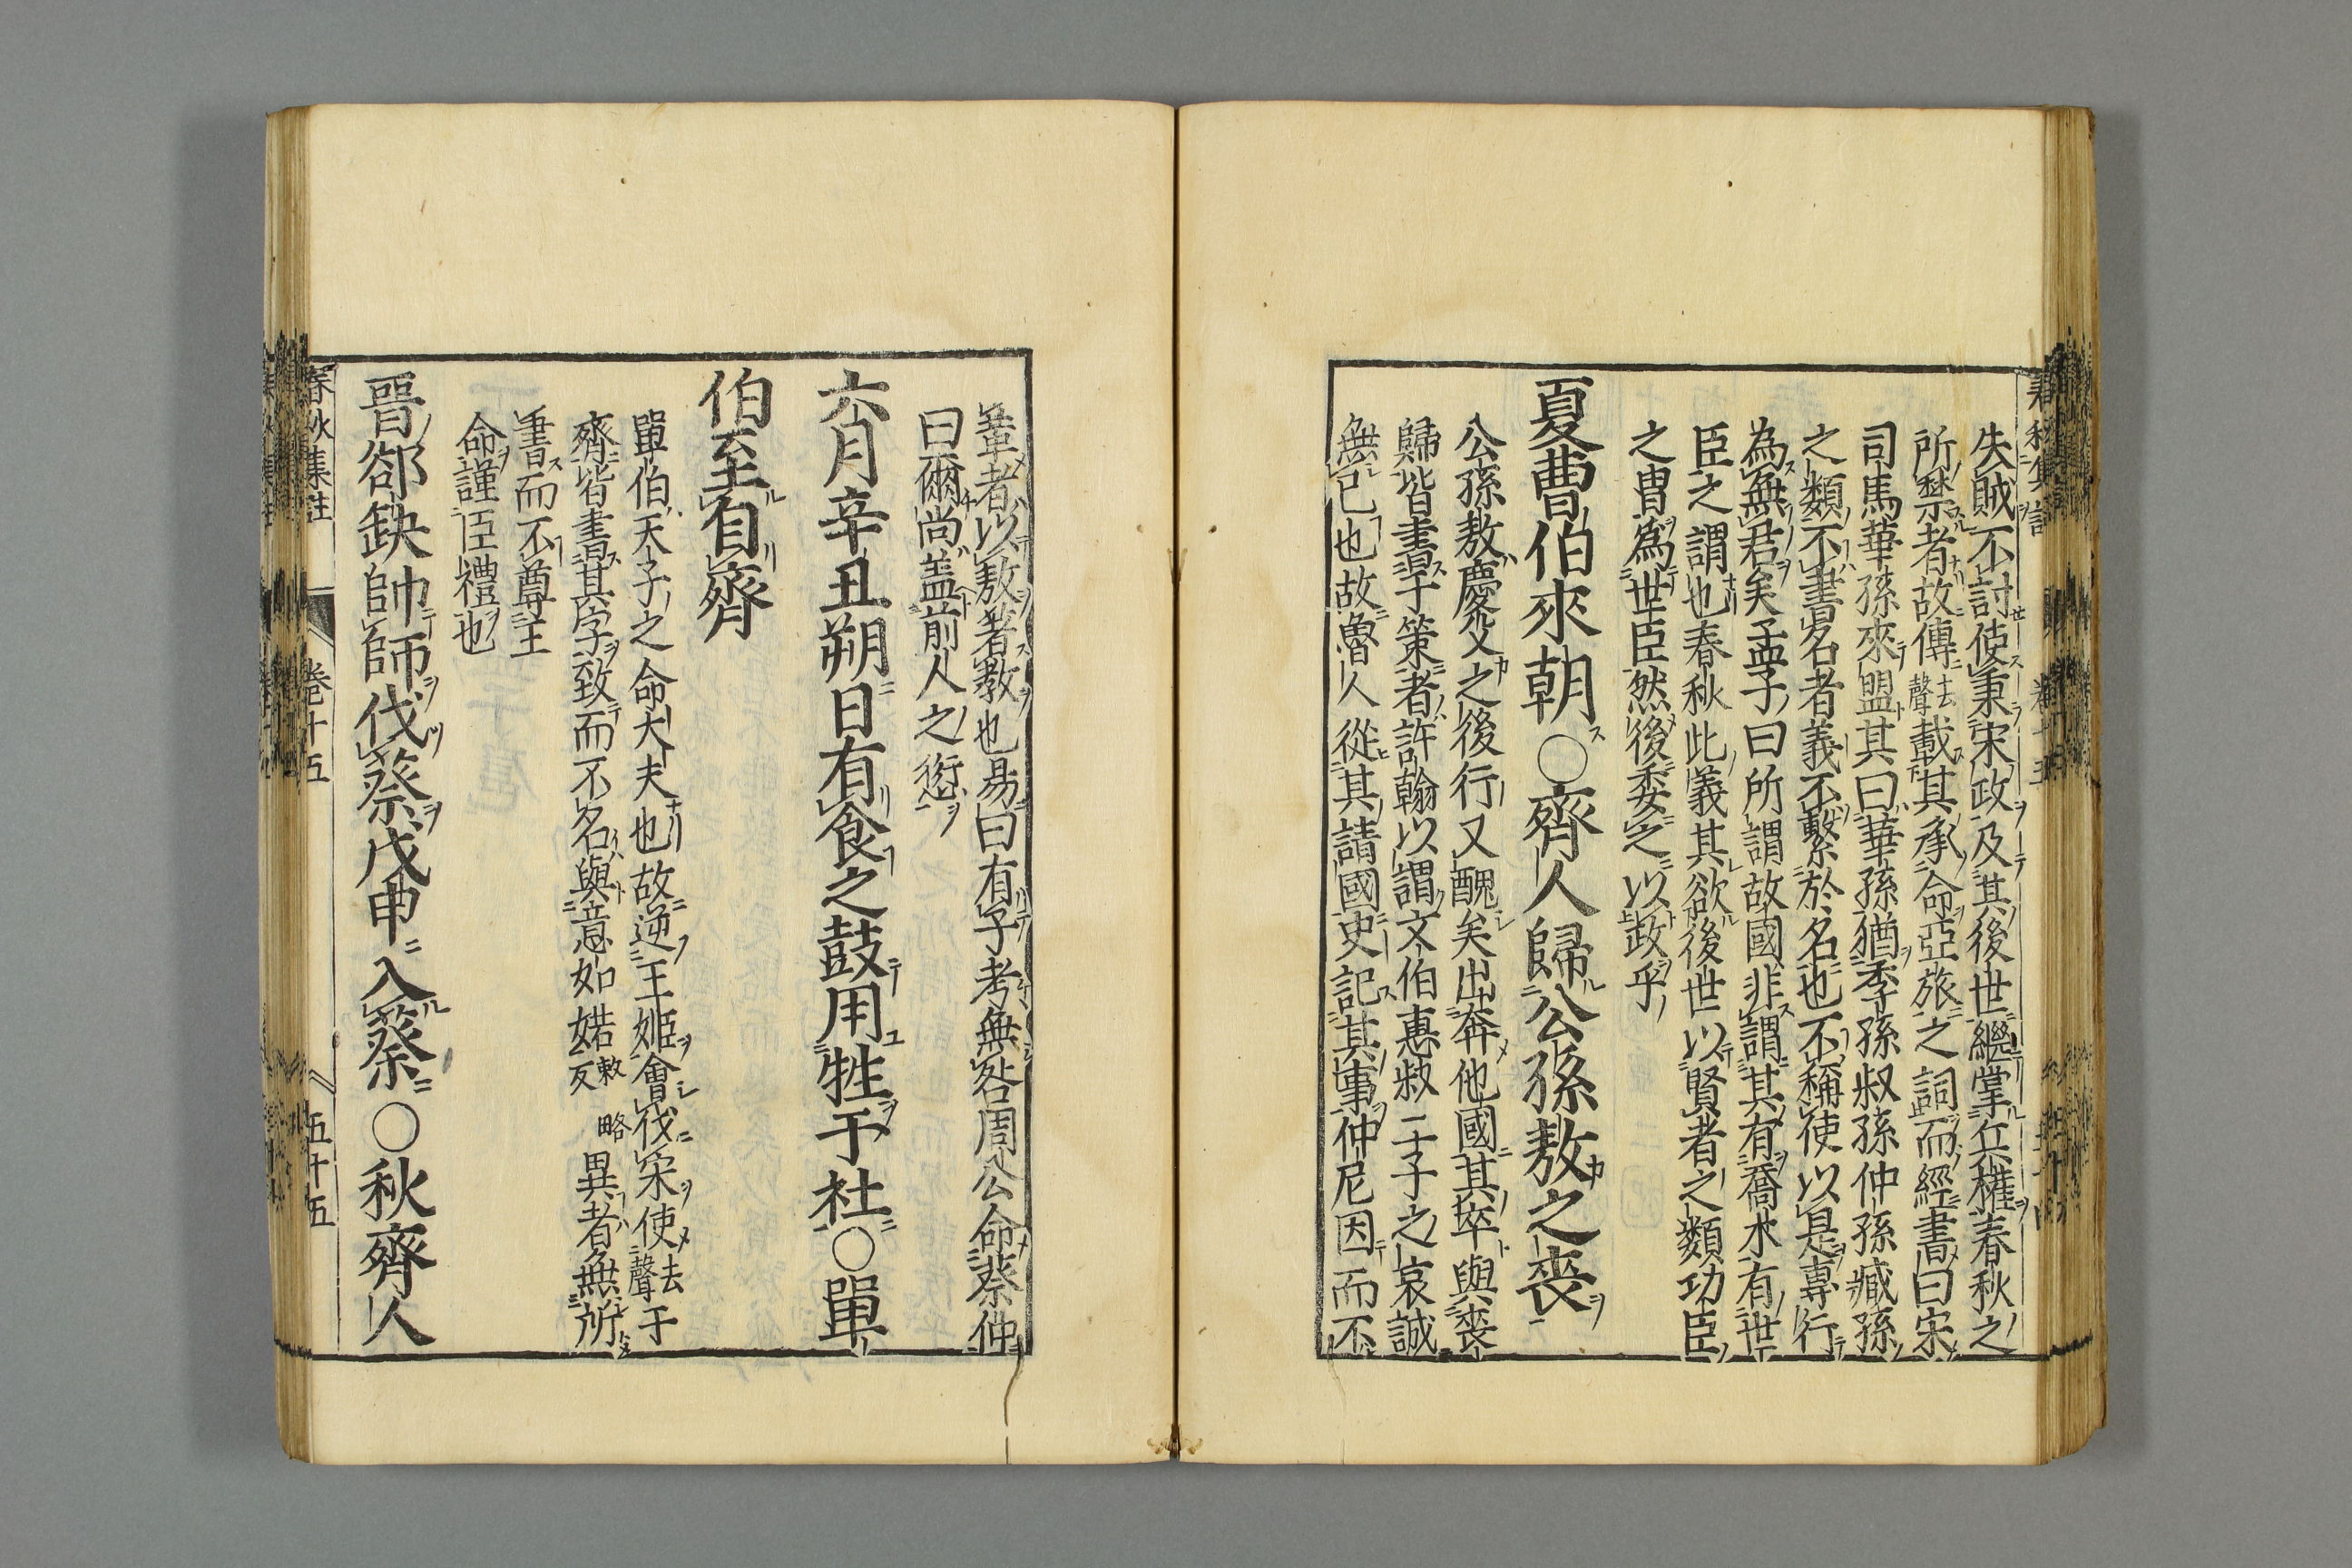 失賊不討使秉宋政及其後世繼掌兵權春秋之
所禁者故傳去聲載其承命亞旅之詞而經書曰宋
司馬華孫來盟其曰華孫猶季孫叔孫仲孫臧孫
之類不書名者義不繫於名也不稱使以是專行
為無君矣孟子曰所謂故國非謂其有喬木有世
臣之謂也春秋此義其欲後世以賢者之類功臣
之胄為世臣然後委之以政乎
夏曹伯來朝○齊人歸公孫敖之喪
公孫敖慶父之後行又醜矣出奔他國其卒與喪
歸皆書于策者許翰以謂文伯惠叔二子之哀誠
無已也故魯人從其請國史記其事仲尼因而不
革者以敖著教也易曰有子考無咎周公命蔡仲
曰爾尚蓋前人之愆
六月辛丑朔日有食之鼓用牲于社○單
伯至自齊
單伯天子之命大夫也故逆王姬會伐宋使去聲于
齊皆書其字致而不名與意如婼敕略反異者無所
書而不尊王
命謹臣禮也
晉郤缺帥師伐蔡戊申入蔡○秋齊人
春秋集註 卷十五 五十五